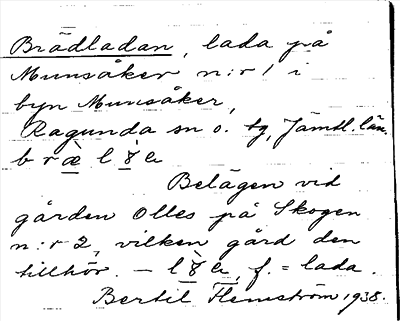 Brädladan, lada på
Munsåker n:r 1 i
byn Munsåker,
Ragunda sn o. tg, Jämtl. län.
Belägen vid
gården Olles på Skogen
n:r 2, vilken gård den
tillhör. – f. = lada.
Bertil Flemström 1938.